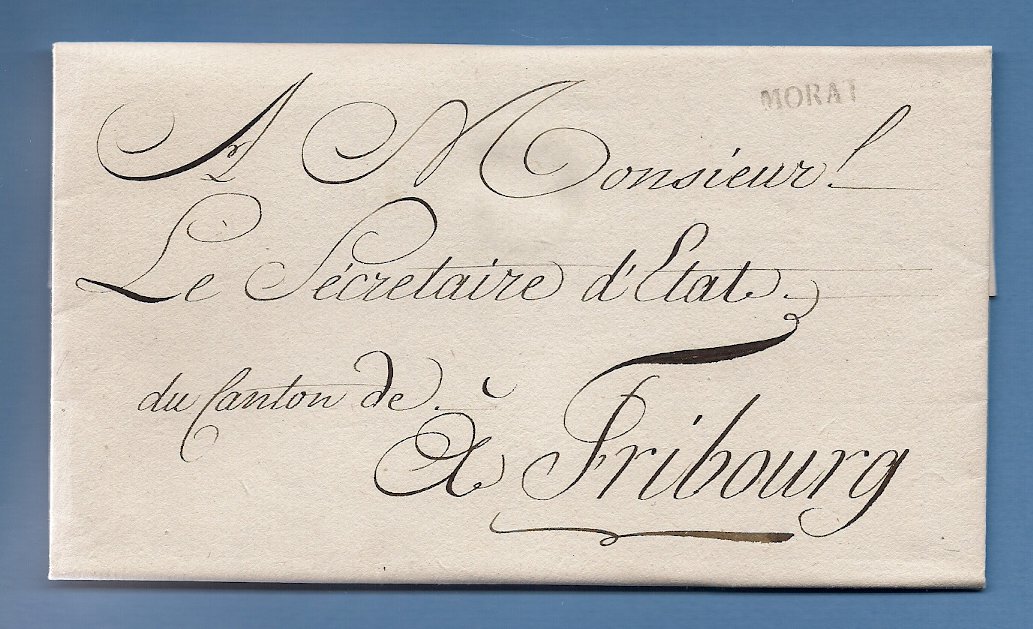 MORAT
A Monsieur
Le Sécretaire d'Etat
du Canton de
à Fribourg